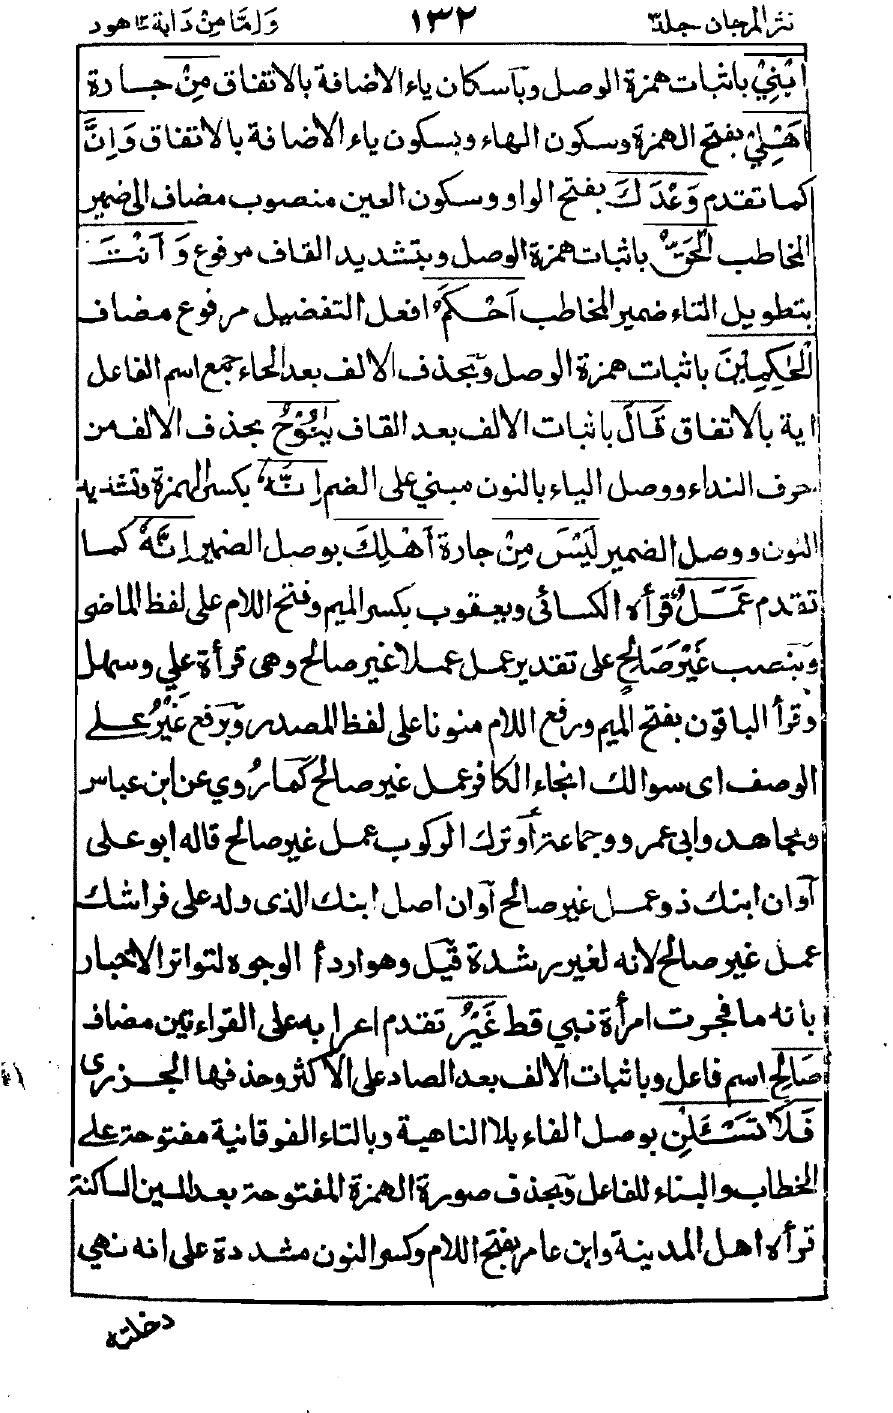 نثر المرجان جلد٣ ١٣٢ وَمَا مِنْ دَابة ١٢ هود
ابْنِيْ باثبات همزة الوصل وبآسكان ياء الاضافة بالاتفاق مِنْ جـارة
اَهْلِيْ بفتح الهمزة وسكون الهاء وبسكون ياء الاضافة بالاتفاق وَاِنَّ
كما تقدم وَعْدَكَ بفتح الواو وسكون العين منصوب مضاف الى ضمير
المخاطب الْحَقُّ باثبات همزة الوصل وبتشديد القاف مرفوع وَاَنْتَ
بتطويل التاء ضمير المخاطب اَحْكَمُ افعل التفضيل مرفوع مضاف
الْحٰكِمِيْنَ باثبات همزة الوصل وبحذف الالف بعد الحاء جمع اسم الفاعل
اية بالاتفاق قَالَ باثبات الالف بعد القاف يٰنُوْحُ بحذف الالف من
حرف النداء ووصل الياء بالنون مبني على الضم اِنَّهٗ بكسر الهمزة وتشديد
النون ووصل الضمير لَيْسَ مِنْ جارة اَهْلِكَ بوصل الضمير اِنَّهٗ كما
تقدم عَمَلٌ قرأه الكسائى ويعقوب بكسر الميم وفتح اللام على لفظ الماضى
وبنصب غَيْرَ صَالِحٍ على تقدير عمل عملا غير صالح وهى قرأة علي وسهل
وقرأ الباقون بفتح الميم ورفع اللام منونا على لفظ المصدر وبرفع غَيْرُ على
الوصف اى سوالك انجاء الكافر عمل غير صالح كما رُوي عن ابن عباس
ومجاهد وابى عمرو وجماعة أو ترك الركوب عمل غير صالح قاله ابو على
آو ان ابنك ذو عمل غير صالح آو ان اصل ابنك الذى ولد على فراشك
عمل غير صالح لانه لغير رشدة قيل وهو اردأ الوجوه لتواتر الاخبار
بانه ما فجرت امرأة نبي قط غَيْرُ تقدم اعرابه على القراءتين مضاف
صَالِحٍ اسم فاعل وباثبات الالف بعد الصاد على الاكثر وحذفها الجزرى
فَلَا تَسْـَٔلْنِ بوصل الفاء بلا الناهية وبالتاء الفوقانية مفتوحة على
الخطاب والبناء للفاعل وبحذف صورة الهمزة المفتوحة بعد السين الساكنة
قرأه اهل المدينة وابن عامر بفتح اللام وكسر النون مشددة على انه نهي
دخلته